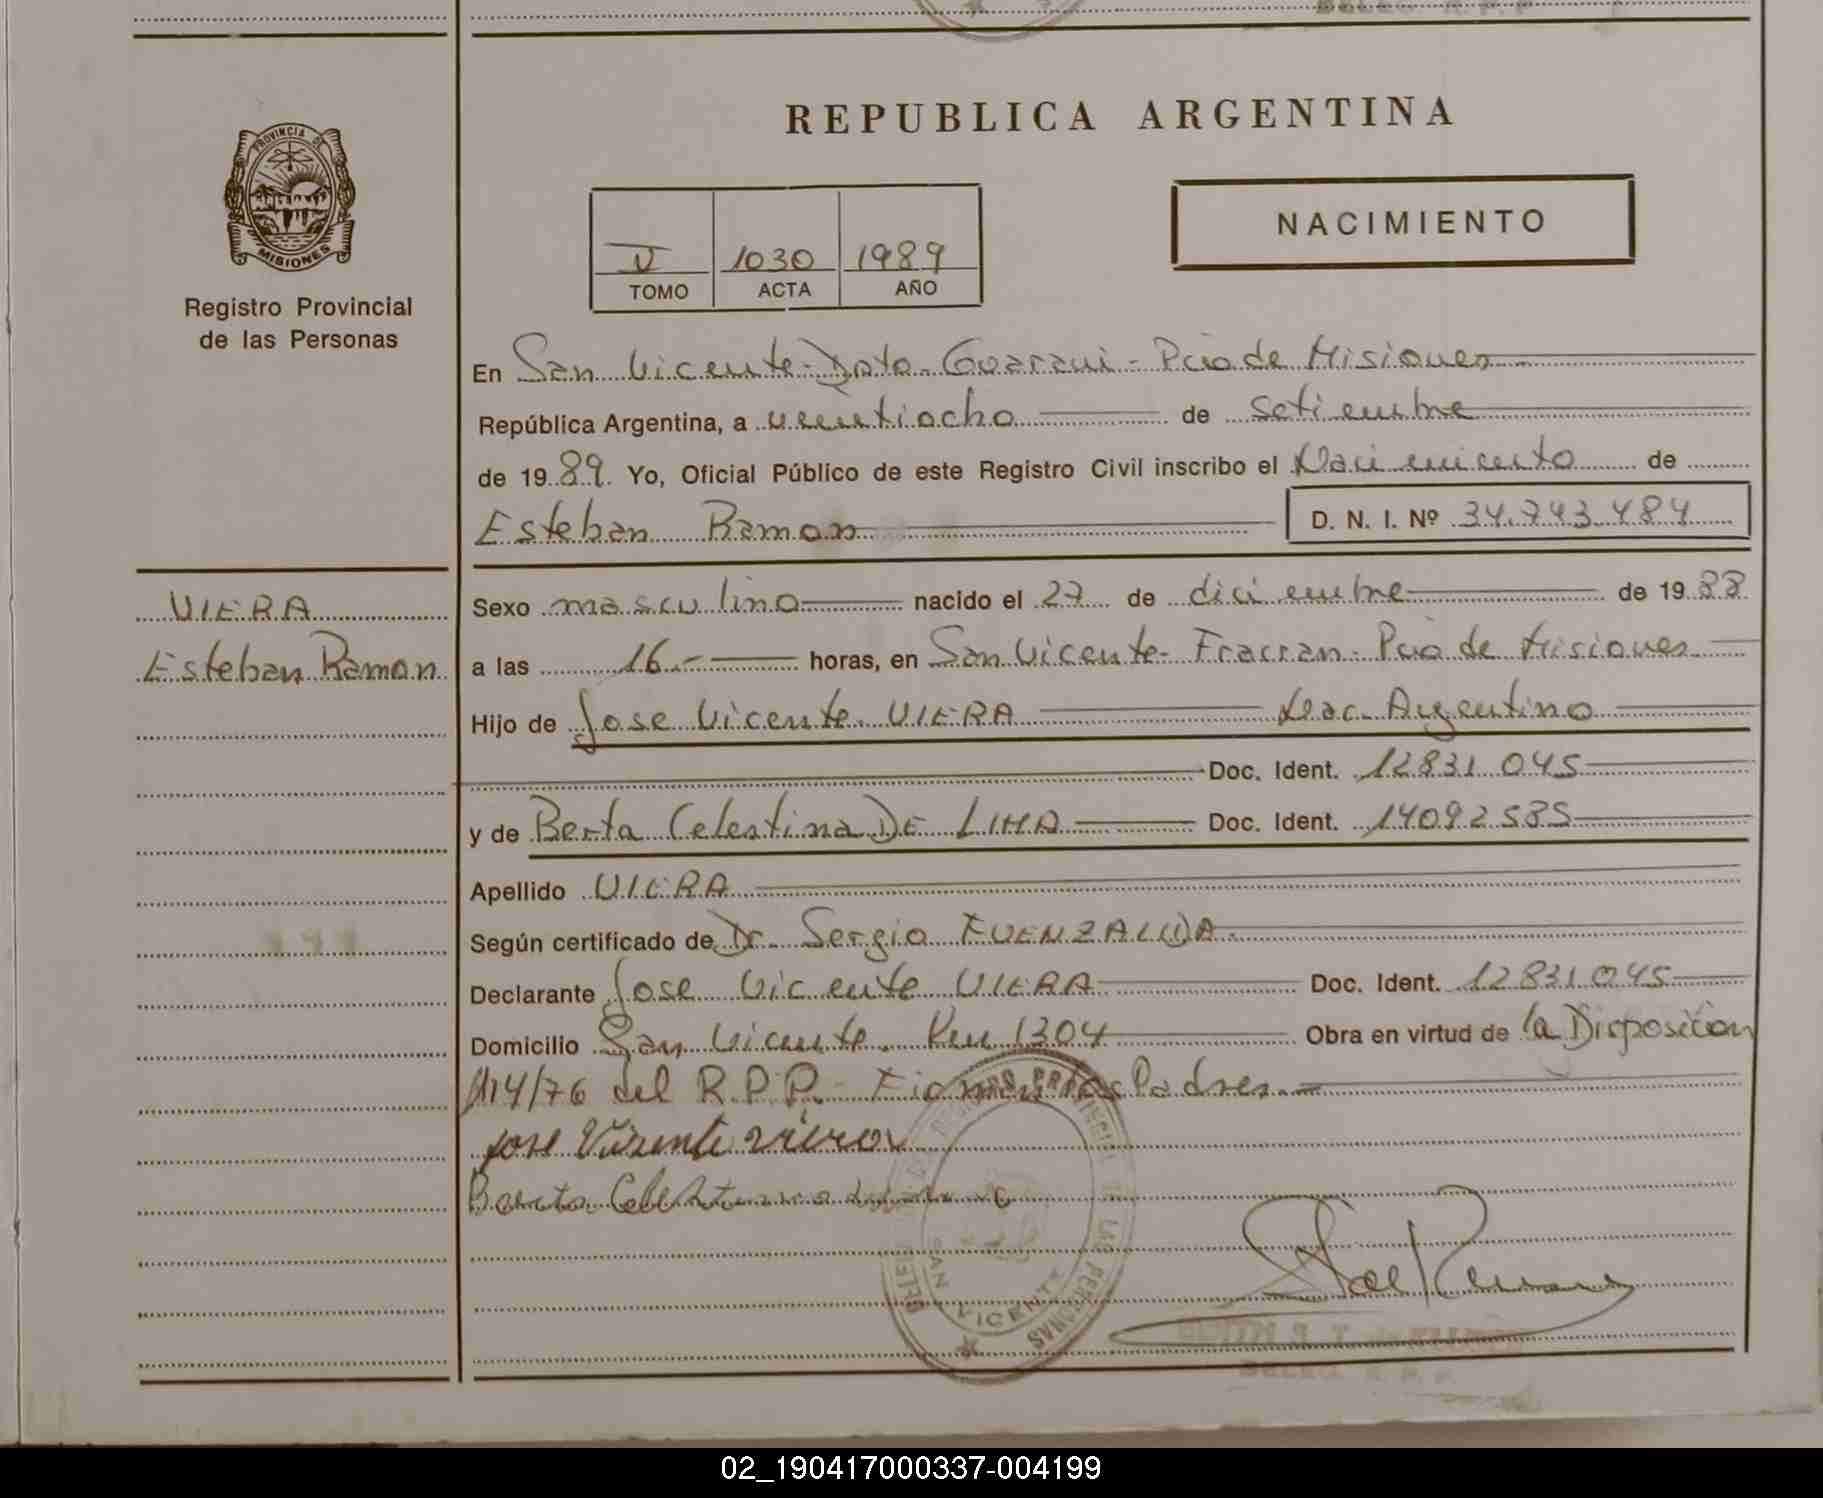 REPUBLICA ARGENTINA
PROVINCIA DE
MISIONES
Registro Provincial
de las Personas
V 1030 1989
TOMO ACTA AÑO
NACIMIENTO
En San Vicente - Dpto. Guarani - Pcia de Misiones
República Argentina, a veintiocho de setiembre
de 19 89 Yo, Oficial Público de este Registro Civil inscribo el Nacimiento de
Esteban Ramon D. N. I. Nº 34.743.484
VIERA
Esteban Ramon
Sexo masculino nacido el 27 de diciembre de 19 88
a las 16.- horas, en San Vicente - Fracran - Pcia de Misiones
Hijo de Jose Vicente VIERA Nac. Argentino
Doc. Ident. 12831045
y de Berta Celestina DE LIMA Doc. Ident. 14092585
Apellido VIERA
Según certificado de Dr. Sergio FUENZALIDA.
Declarante Jose Vicente VIERA Doc. Ident. 12831045
Domicilio San Vicente. Km 1304 Obra en virtud de la Disposición
114/76 del R.P.P. - Firman los Padres.-
Jose Vicente viera
Berta
SAN VICENTE
LAS PERSONAS
02_190417000337-004199